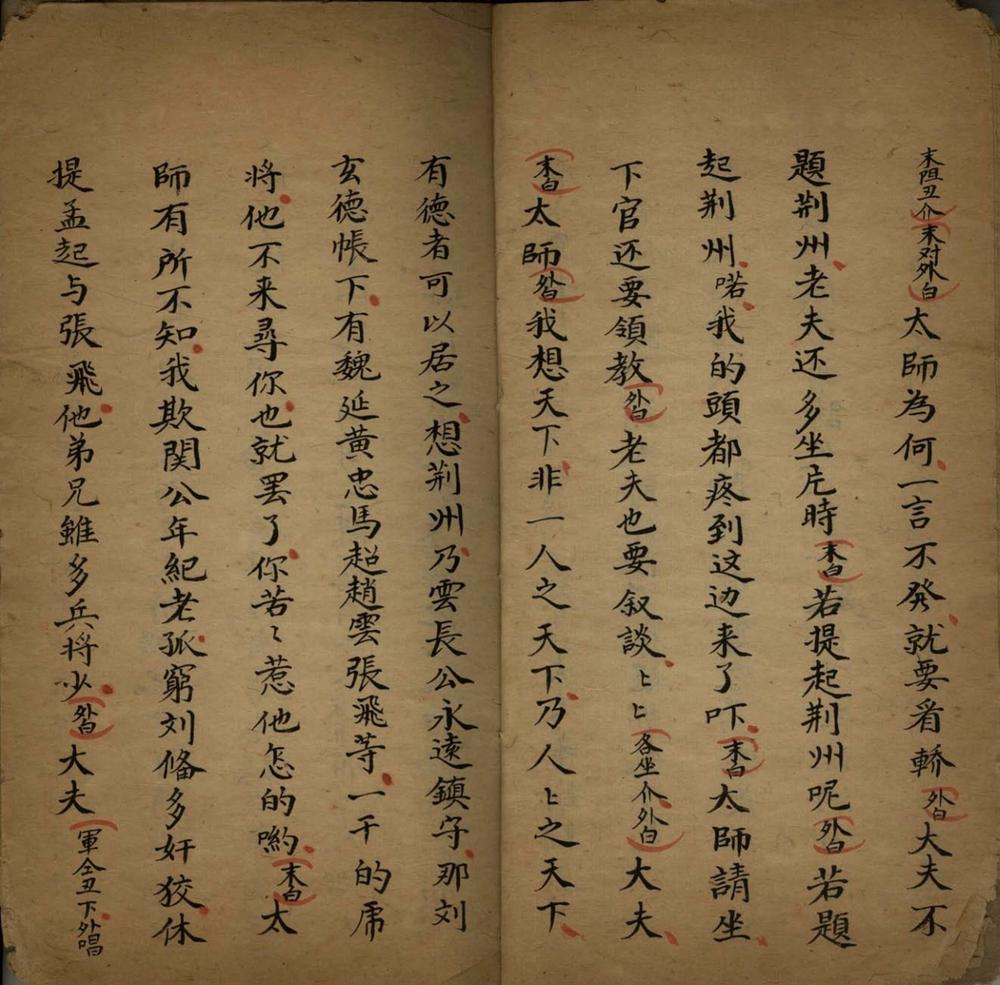 末阻丑介末对外白太師為何一言不發就要看轎外白大夫不
題荆州老夫还多坐片時末白若提起荆州呢外白若題
起荆州喏我的頭都疼到这边来了吓末白太師請坐
下官还要領教外白老夫也要叙談〻〻各坐介外白大夫
末白太師外白我想天下非一人之天下乃人〻之天下
有德者可以居之想荆州乃雲長公永遠鎮守那刘
玄德帳下有魏延黄忠馬超趙雲張飛等一干的虎
将他不来尋你也就罢了你苦〻惹他怎的喲末白太
師有所不知我欺関公年紀老孤窮刘俻多奸狡休
提孟起与張飛他弟兄雖多兵将少外白大夫軍仝丑下外唱